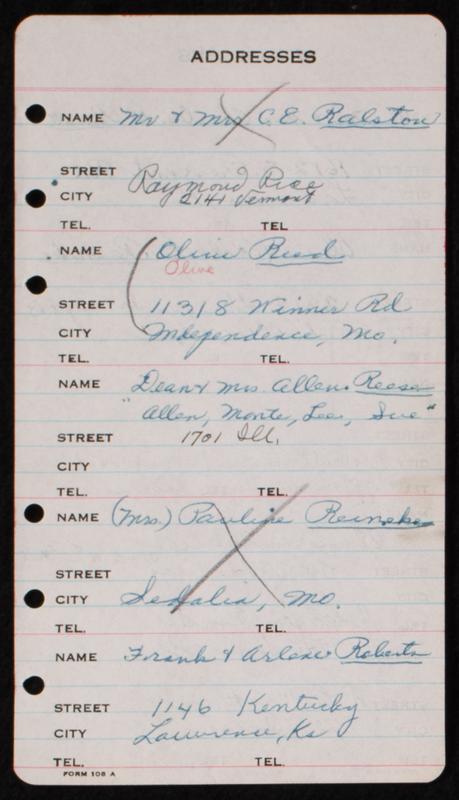 ADDRESSES
NAME Mr & Mrs C.E. Ralston
STREET Raymond Rice
CITY 2141 Vermont
TEL. TEL
NAME Olive Reed
Olive
STREET 11318 Winner Rd
CITY Independence, Mo.
TEL. TEL.
NAME Dean & Mrs. Allen Reese
"Allen, Monte, Lee, Sue"
STREET 1701 Ill.
CITY
TEL. TEL.
NAME (Mrs.) Pauline Reineke
STREET
CITY Sedalia, Mo.
TEL. TEL.
NAME Frank & Arlene Roberts
STREET 1146 Kentucky
CITY Lawrence, Ks
TEL. TEL.
FORM 108 A